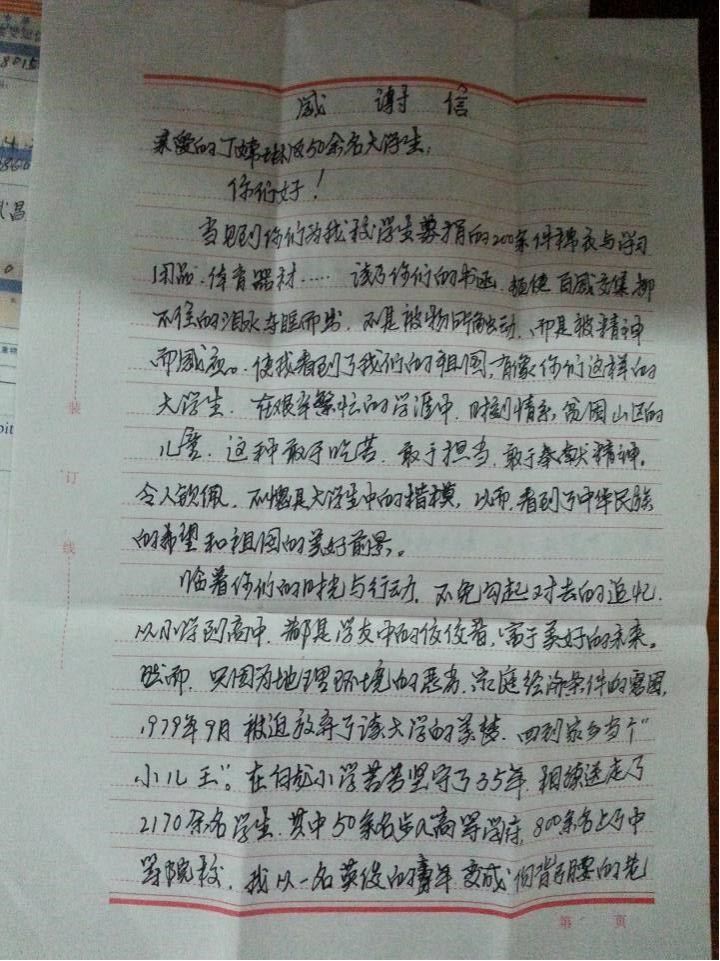 感 谢 信
亲爱的丁婷婷及50余名大学生:
你们好!
当见到你们为我校学生募捐的200余件棉衣与学习
用品、体育器材…… 读了你们的书函,顿使百感交集,抑
不住的泪水夺眶而出,不是被物所触动,而是被精神
而感颜。使我看到了我们的祖国,有像你们这样的
大学生,在艰辛繁忙的学涯中,时刻情系贫困山区的
儿童,这种敢于吃苦、敢于担当、敢于奉献精神,
令人钦佩,不愧是大学生中的楷模,从而,看到了中华民族
的希望和祖国的美好前景。
临着你们的时光与行动,不免勾起对过去的追忆,
从小学到高中,都是学友中的佼佼者,富于美好的未来。
然而,只因为地理环境的恶劣,家庭经济条件的窘困,
1979年9月被迫放弃了读大学的美梦,回到家乡当个“
小儿王”。在白龙小学苦苦坚守了35年,相续送走了
2170余名学生,其中50余名步入高等学府,800余名上了中
等院校,我以一名英俊的青年变成佝背弓腰的老
第 页
装
订
线
8015
昌
0
bit